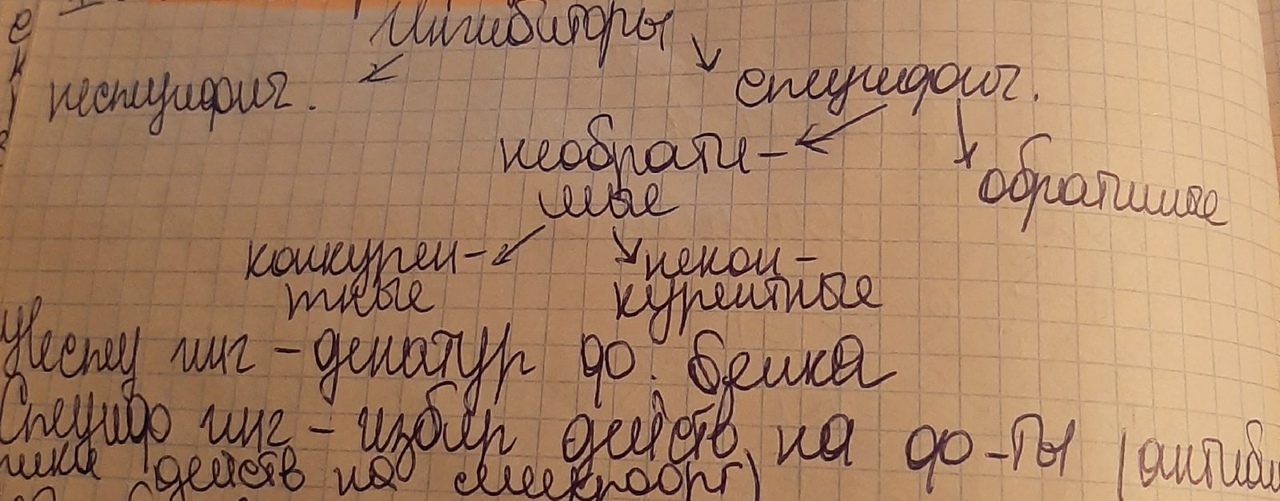 Ингибиторы
неспецифич. специфич.
необрати-
мые обратимые
конкурен- некон-
тные курентные
Неспец инг - денатур ф. белка
Специф инг - избир действ. на ф-ты (антиби
действ на микроорг)